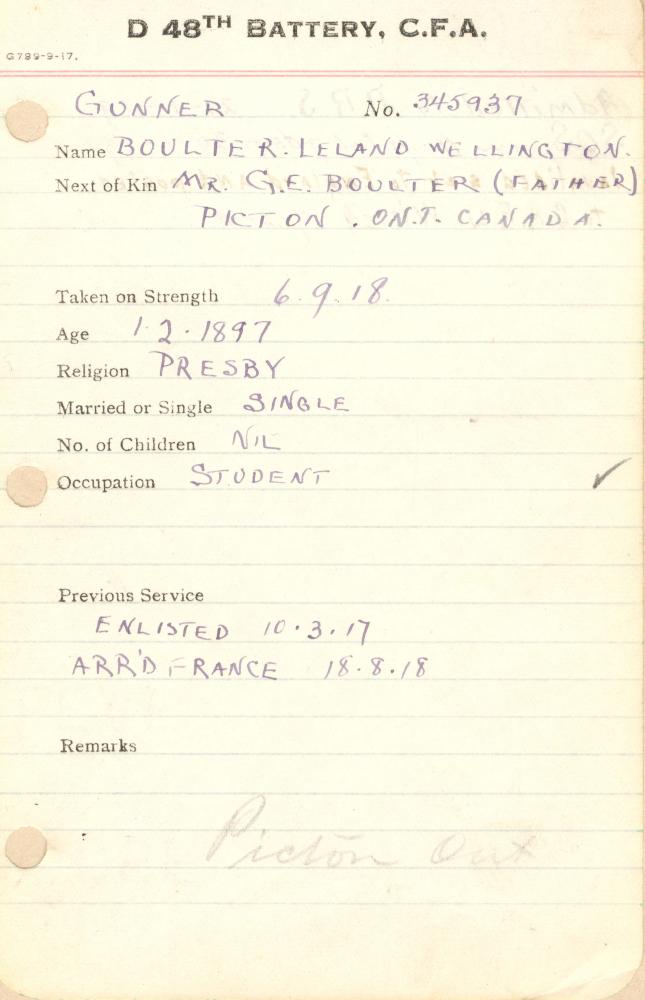 D 48TH BATTERY, C.F.A.
G789-9-17.
GUNNER No. 345937
Name BOULTER. LELAND WELLINGTON.
Next of Kin MR. G.E. BOULTER (FATHER)
PICTON. ONT. CANADA.
Taken on Strength 6.9.18.
Age 1.2.1897
Religion PRESBY
Married or Single SINGLE
No. of Children NIL
Occupation STUDENT
Previous Service
ENLISTED 10.3.17
ARR'D FRANCE 18.8.18
Remarks
Picton Ont